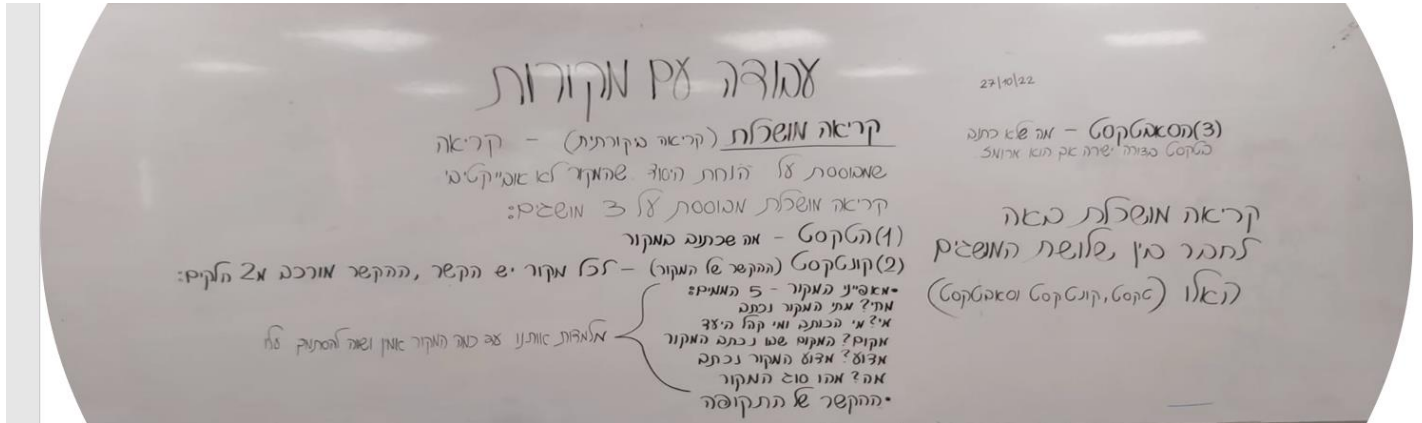 27/10/22
עבודה עם מקורות
קריאה מושכלת (קריאה ביקורתית) – קריאה
שמבוססת על הנחת היסוד שהמקור לא אובייקטיבי.
קריאה מושכלת מבוססת על 3 מושגים:
(1) הטקסט – מה שכתוב במקור
(2) קונטקסט (ההקשר של המקור) – לכל מקור יש הקשר, ההקשר מורכב מ2 חלקים:
•מאפייני המקור – 5 הממים:
מתי? מתי המקור נכתב
מי? מי הכותב ומי קהל היעד
מקום? המקום שבו נכתב המקור
מדוע? מדוע המקור נכתב
מה? מהו סוג המקור
•ההקשר של התקופה
מלמדות אותנו עד כמה המקור אמין ושווה להסתמך עליו
(3) הסאבטקסט – מה שלא כתוב
בטקסט בצורה ישירה אך הוא מרומז
קריאה מושכלת באה
לחבר בין שלושת המושגים
האלו (טקסט, קונטקסט וסאבטקסט)